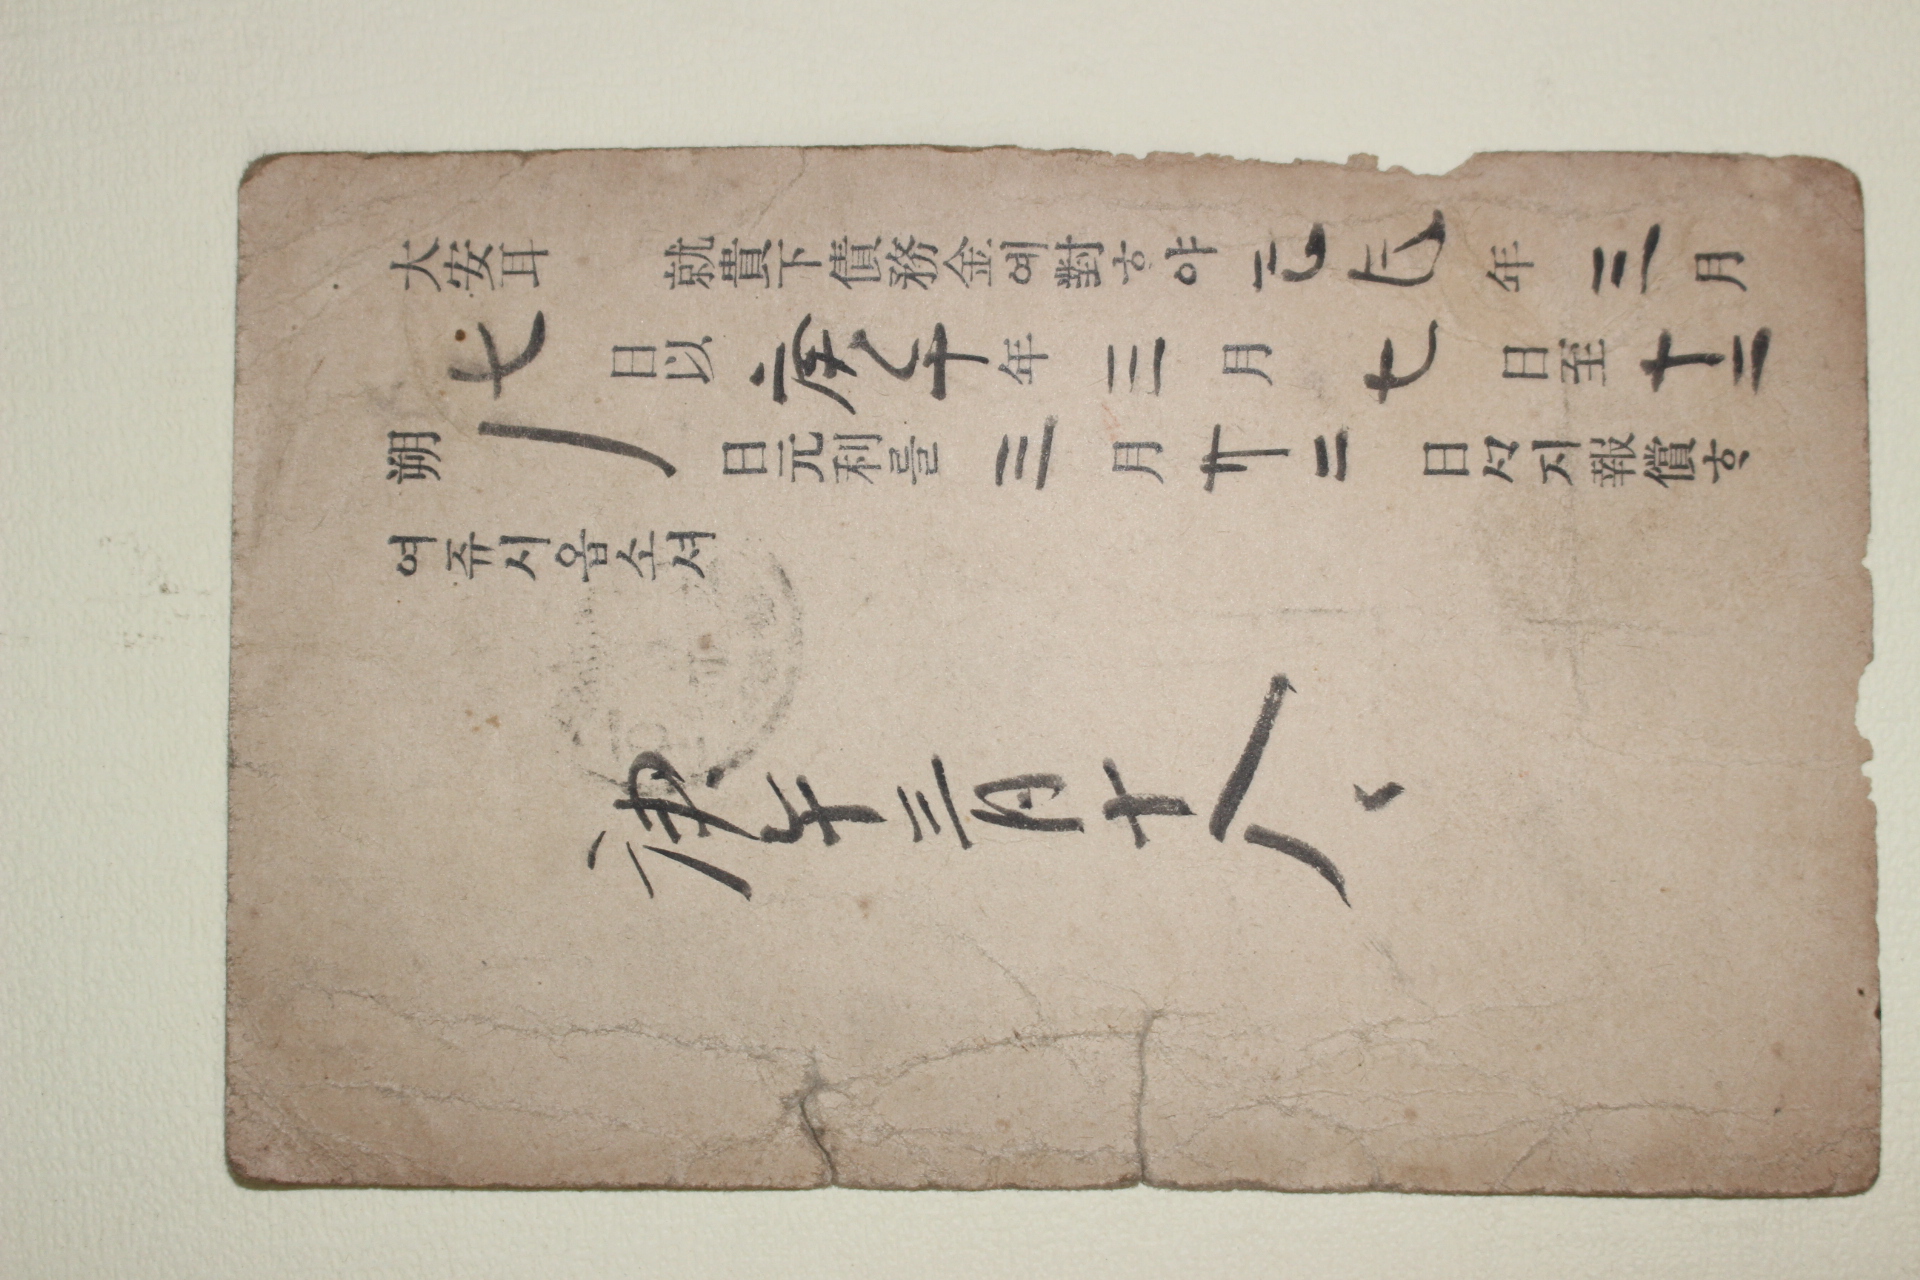 大安耳 就貴下債務金예對ᄒᆞ야 年 三 月
七 日以 庚午 年 三 月 七 日至 十二
朔 日元利를 三 月 廿二 日ᄭᆞ지報償ᄒᆞ
여쥬시옵소셔
庚午三月十八